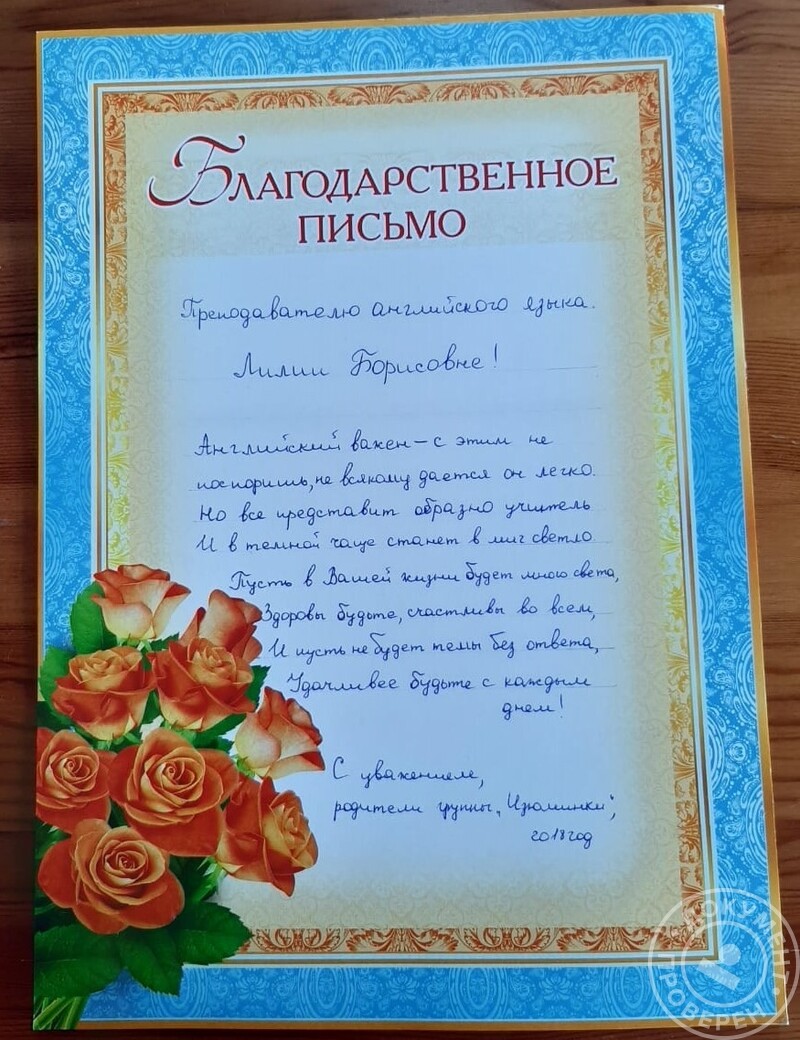 Благодарственное
письмо
Преподавателю английского языка.
Лилии Борисовне!
Английский важен – с этим не
поспоришь, не всякому дается он легко.
Но все представит образно учитель
И в темной чаще станет в миг светло.
Пусть в Вашей жизни будет много света,
Здоровы будьте, счастливы во всем,
И пусть не будет темы без ответа,
Удачливее будьте с каждым
днем!
С уважением,
родители группы „Изюминки",
2018 год
ДОКУМЕНТ
ПРОВЕРЕН